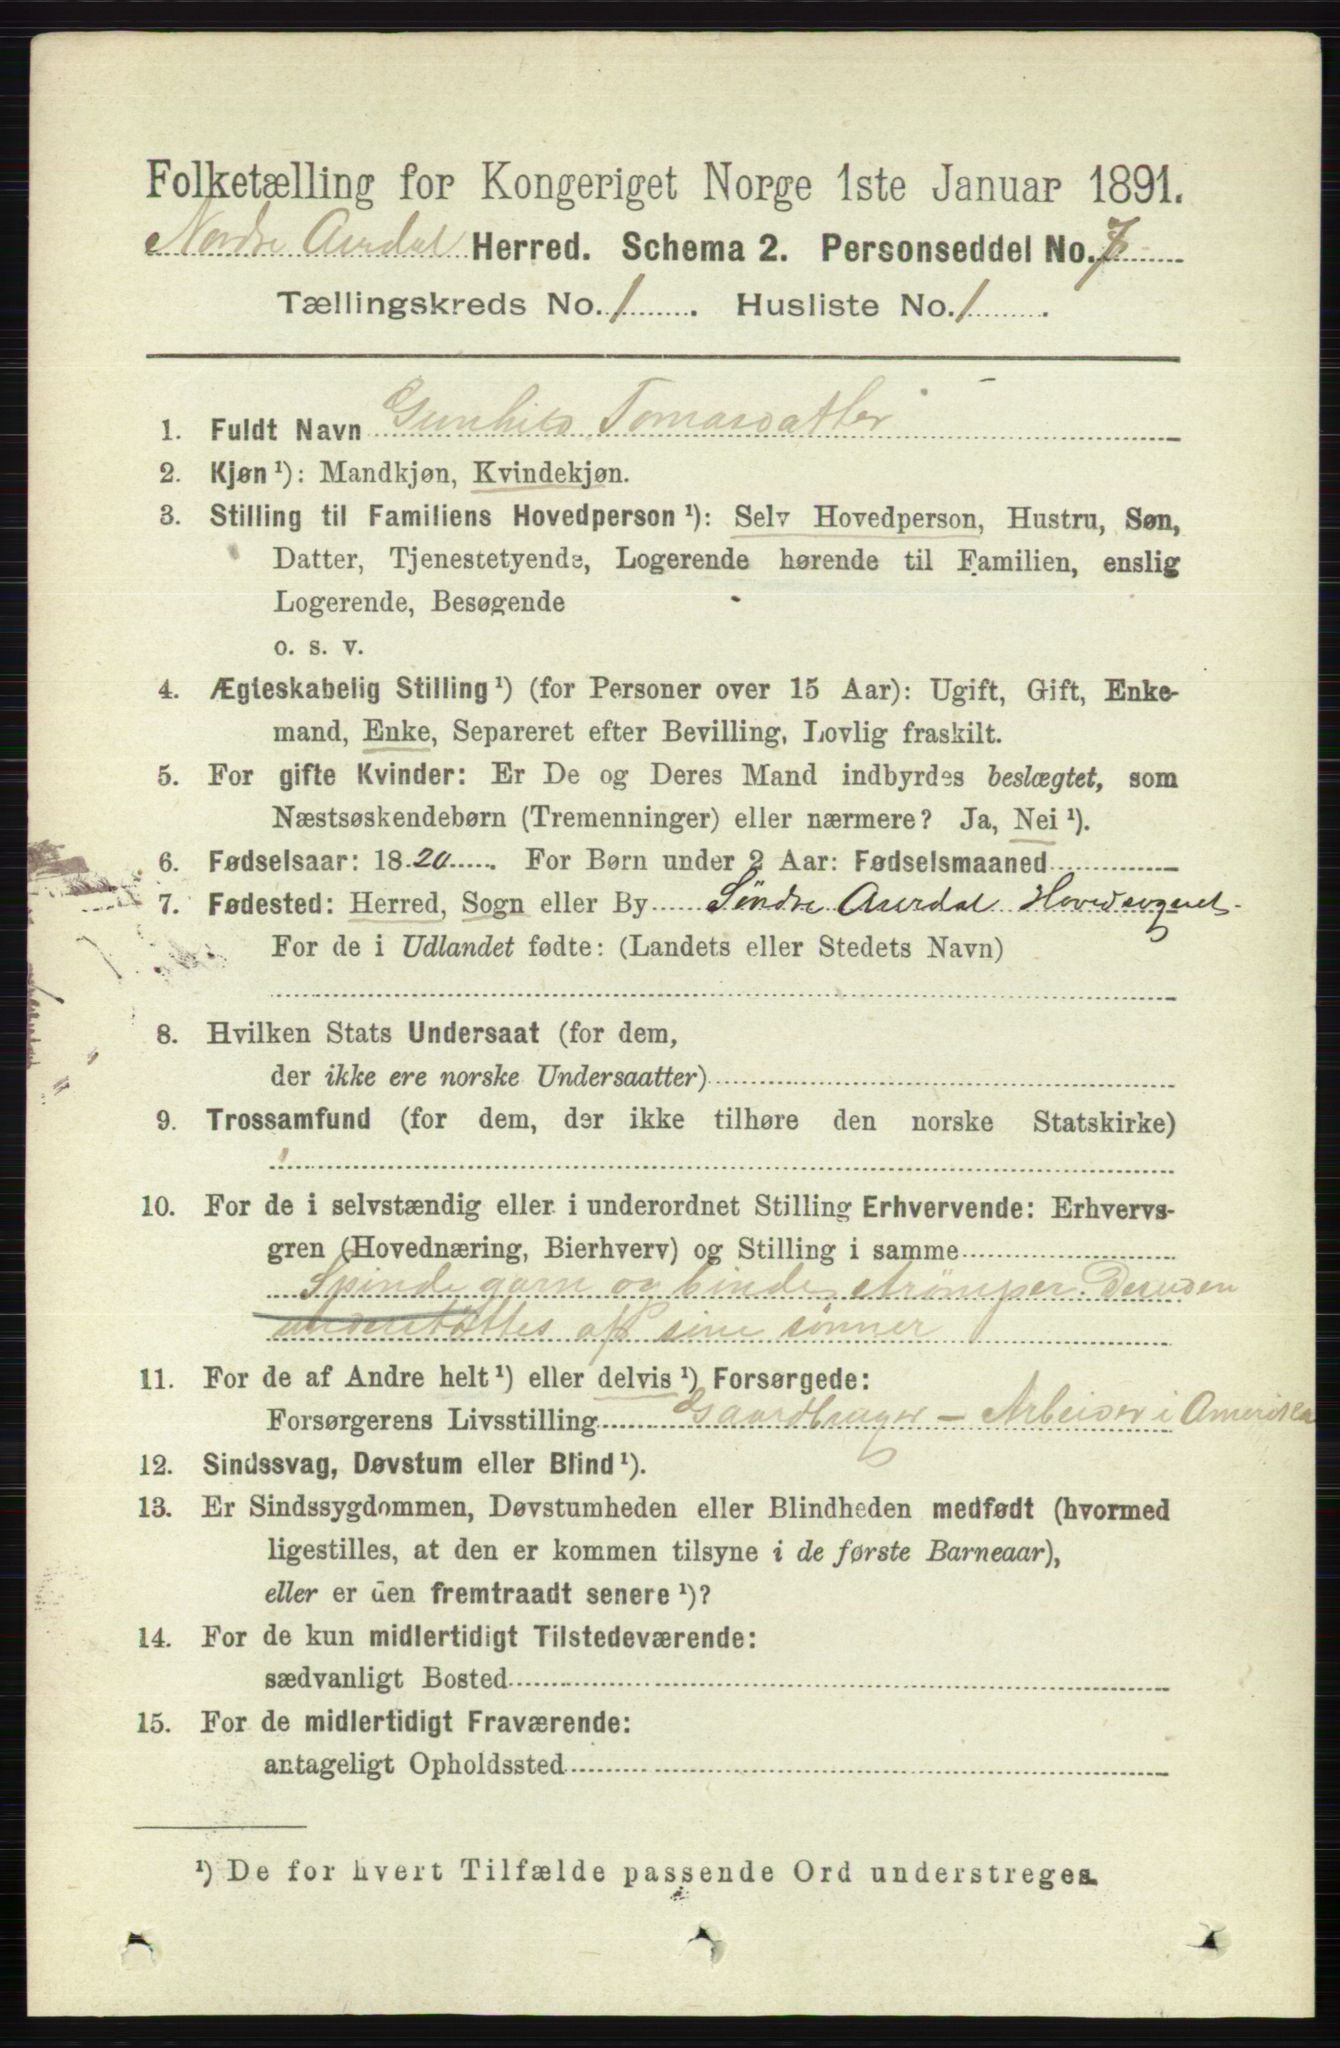 Folketælling for Kongeriget Norge 1ste Januar 1891.
Nordre Aurdal Herred. Schema 2. Personseddel No. 7
Tællingskreds No. 1. Husliste No. 1.
1. Fuldt Navn Gunhild Tomasdatter
2. Kjøn ¹): Mandkjøn, Kvindekjøn.
3. Stilling til Familiens Hovedperson ¹): Selv Hovedperson, Hustru, Søn,
Datter, Tjenestetyende, Logerende hørende til Familien, enslig
Logerende, Besøgende
o. s. v.
4. Ægteskabelig Stilling ¹) (for Personer over 15 Aar): Ugift, Gift, Enke-
mand, Enke, Separeret efter Bevilling, Lovlig fraskilt.
5. For gifte Kvinder: Er De og Deres Mand indbyrdes beslægtet, som
Næstsøskendebørn (Tremenninger) eller nærmere? Ja, Nei ¹).
6. Fødselsaar: 1820. For Børn under 2 Aar: Fødselsmaaned
7. Fødested: Herred, Sogn eller By Söndre Aurdal Hovedsognet.
For de i Udlandet fødte: (Landets eller Stedets Navn)
8. Hvilken Stats Undersaat (for dem,
der ikke ere norske Undersaatter)
9. Trossamfund (for dem, der ikke tilhøre den norske Statskirke)
10. For de i selvstændig eller i underordnet Stilling Erhvervende: Erhvervs-
gren (Hovednæring, Bierhverv) og Stilling i samme
Spinde garn og binde strömper. Desuden
understöttes af sine sönner
11. For de af Andre helt ¹) eller delvis ¹) Forsørgede:
Forsørgerens Livsstilling Gaardbruger – Arbeider i Amerika
12. Sindssvag, Døvstum eller Blind ¹).
13. Er Sindssygdommen, Døvstumheden eller Blindheden medfødt (hvormed
ligestilles, at den er kommen tilsyne i de første Barneaar),
eller er den fremtraadt senere ¹)?
14. For de kun midlertidigt Tilstedeværende:
sædvanligt Bosted
15. For de midlertidigt Fraværende:
antageligt Opholdssted
¹) De for hvert Tilfælde passende Ord understreges.